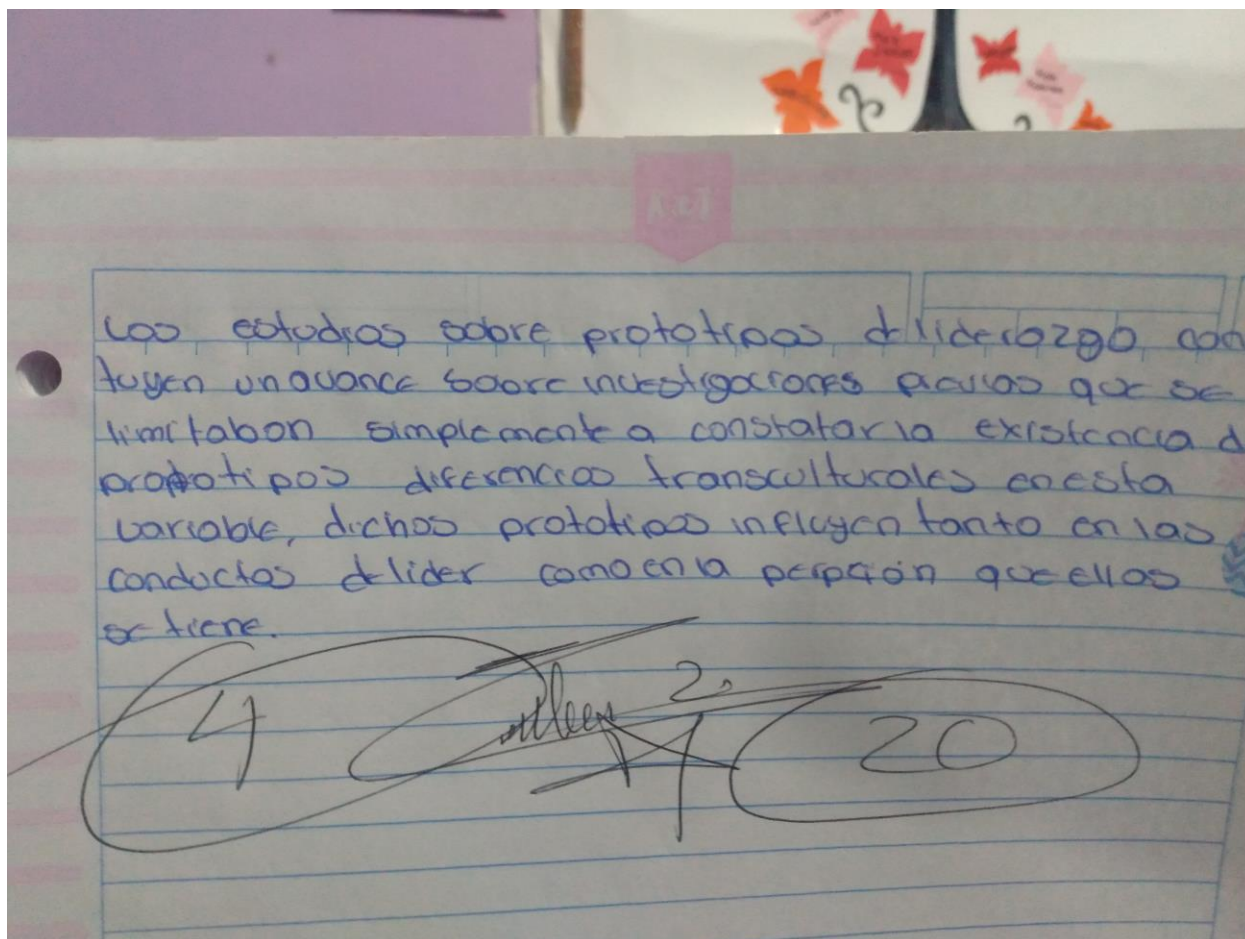 Los estudios sobre prototipos d liderazgo con
tuyen un avance sobre investigaciones previas que se
limitaban simplemente a constatar la existencia d
prototipos diferencias transculturales en esta
variable, dichos prototipos influyen tanto en las
conductas d lider como en la pecpción que ellos
se tiene.
4
20